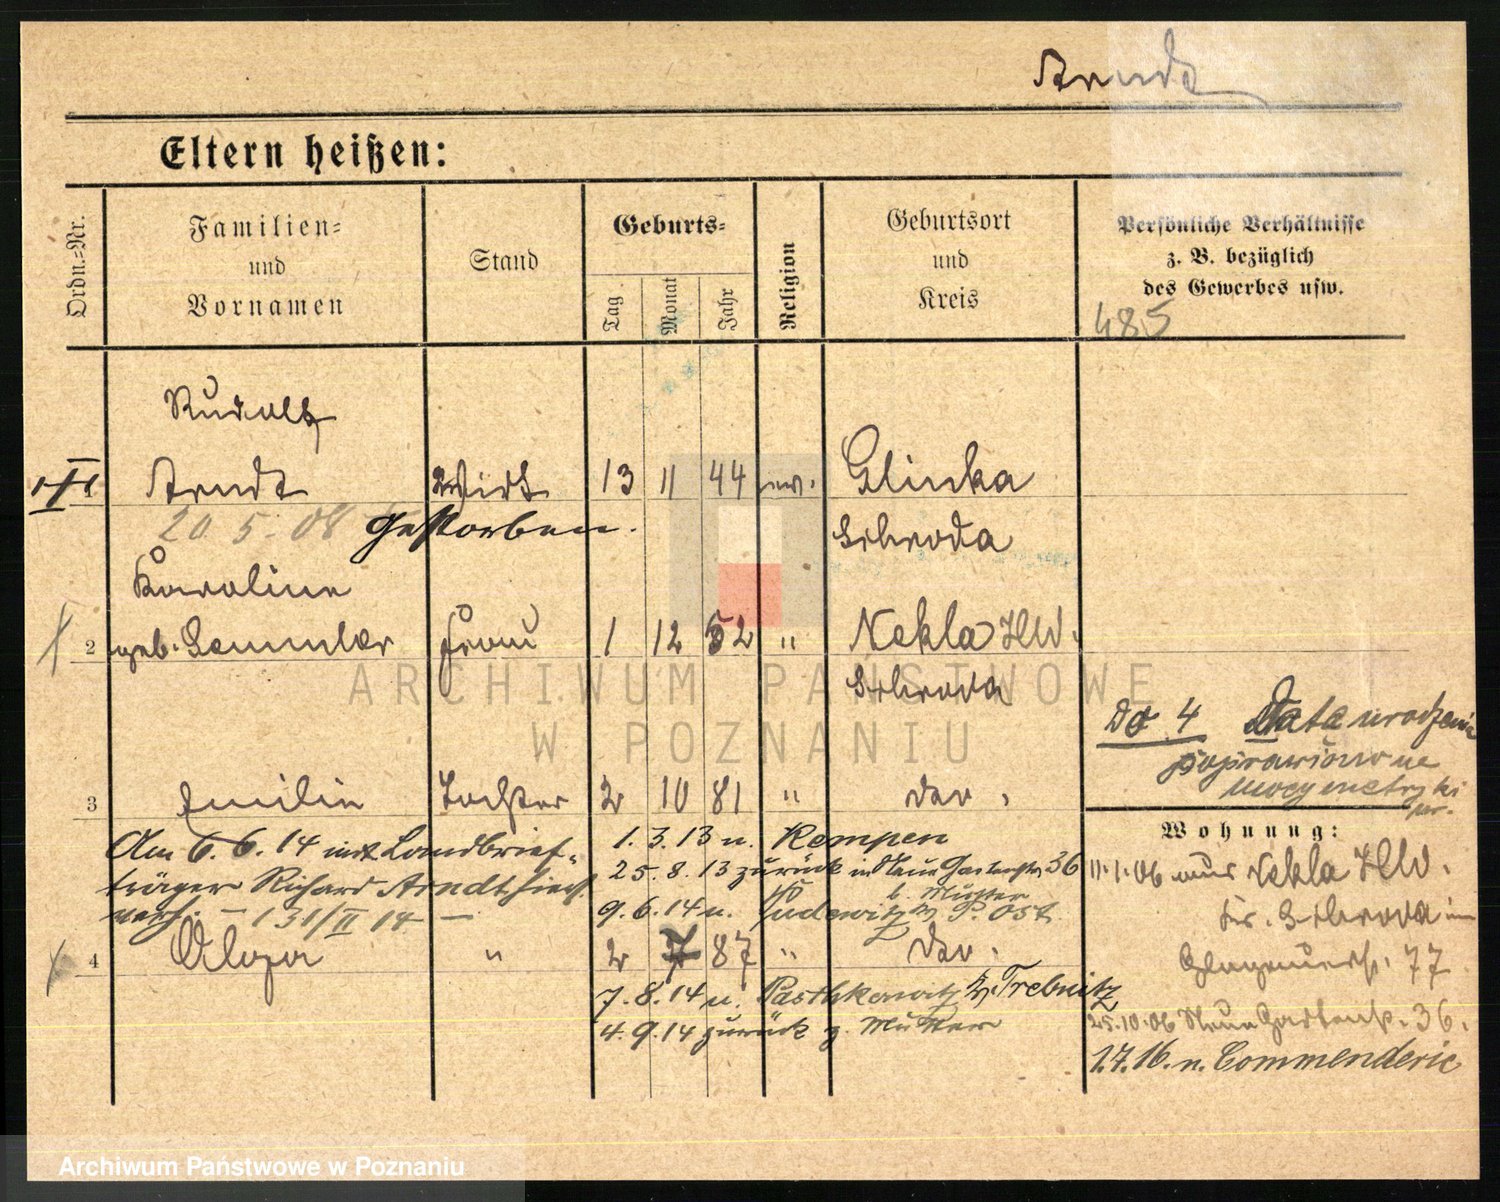 Arndt
Eltern heißen:
Ordn.-Nr.
Familien-
und
Vornamen
Stand
Geburts-
Tag
Monat
Jahr
Religion
Geburtsort
und
Kreis
Persönliche Verhältnisse
z. B. bezüglich
des Gewerbes usw.
485
Rudolf
Arndt Wirt 13 11 44 ev. Glinka
20.5.08 gestorben. Schroda
Karoline
2 geb. Semmler Frau 1 12 52 " Nekla Hld.
Schroda
Do 4 Data urodzenia
poprawiono na
mocy metryki
ur.
3 Emilie Tochter 2 10 81 " do.
Am 6.6.14 mit Landbrief-
träger Richard Arndt hier
verh. – 131/II 14 –
1.3.13 n. Kempen
25.8.13 zurück in Neue Gartenstr 36
b. Mutter
9.6.14 n. Gudewitz P. Ost.
4 Olga " 2 7 87 " do.
7.8.14 n. Paschkowitz Kr. Trebnitz
4.9.14 zurück z. Mutter
Wohnung:
11.1.06 aus Nekla Hld.
Kr. Schroda in
Glogauerstr. 77
25.10.06 Neue Gartenstr. 36.
1.7.16. n. Commenderie
ARCHIWUM PAŃSTWOWE
W POZNANIU
Archiwum Państwowe w Poznaniu